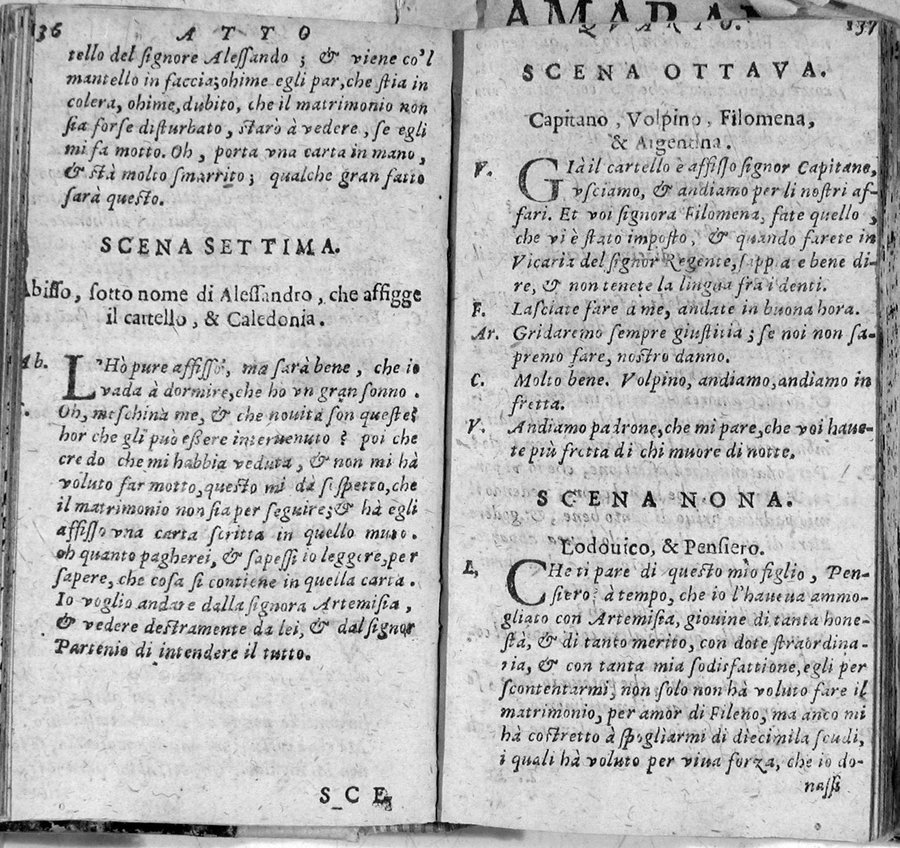 136 ATTO
tello del signore Alessando ; & viene co'l
mantello in faccia; ohime egli par, che stia in
colera, ohime, dubito, che il matrimonio non
sia forse disturbato, starò à vedere, se egli
mi fa motto. Oh, porta vna carta in mano,
& stà molto smarrito; qualche gran fatto
sarà questo.
SCENA SETTIMA.
Abisso, sotto nome di Alessandro, che affigge
il cartello, & Caledonia.
Ab. L'Hò pure affisso, ma sarà bene, che io
vada à dormire, che ho vn gran sonno.
Oh, meschina me, & che nouità son queste?
hor che gli può essere interuenuto? poi che
credo che mi habbia veduta, & non mi hà
voluto far motto, questo mi dà sospetto, che
il matrimonio non sia per seguire; & hà egli
affisso vna carta scritta in quello muro.
oh quanto pagherei, & sapessi io leggere, per
sapere, che cosa si contiene in quella carta.
Io voglio andare dalla signora Artemisia,
& vedere destramente da lei, & dal signor
Partenio di intendere il tutto.
SCE
AMARAN
QVARTO. 137
SCENA OTTAVA.
Capitano, Volpino, Filomena,
& Argentina.
V. Già il cartello è affisso signor Capitano,
vsciamo, & andiamo per li nostri af-
fari. Et voi signora Filomena, fate quello,
che vi è stato imposto, & quando farete in
Vicaria del signor Regente, sappiate bene di-
re, & non tenete la lingua fra i denti.
F. Lasciate fare à me, andate in buona hora.
Ar. Gridaremo sempre giustitia; se noi non sa-
premo fare, nostro danno.
C. Molto bene. Volpino, andiamo, andiamo in
fretta.
V. Andiamo padrone, che mi pare, che voi haue-
te più fretta di chi muore di notte.
SCENA NONA.
Lodouico, & Pensiero.
L. Che ti pare di questo mio figlio, Pen-
siero? à tempo, che io l'haueua ammo-
gliato con Artemisia, giouine di tanta hone-
stà, & di tanto merito, con dote straordina-
ria, & con tanta mia sodisfattione, egli per
scontentarmi, non solo non hà voluto fare il
matrimonio, per amor di Fileno, ma anco mi
hà costretto à spogliarmi di diecimila scudi,
i quali hà voluto per viua forza, che io do-
nassi